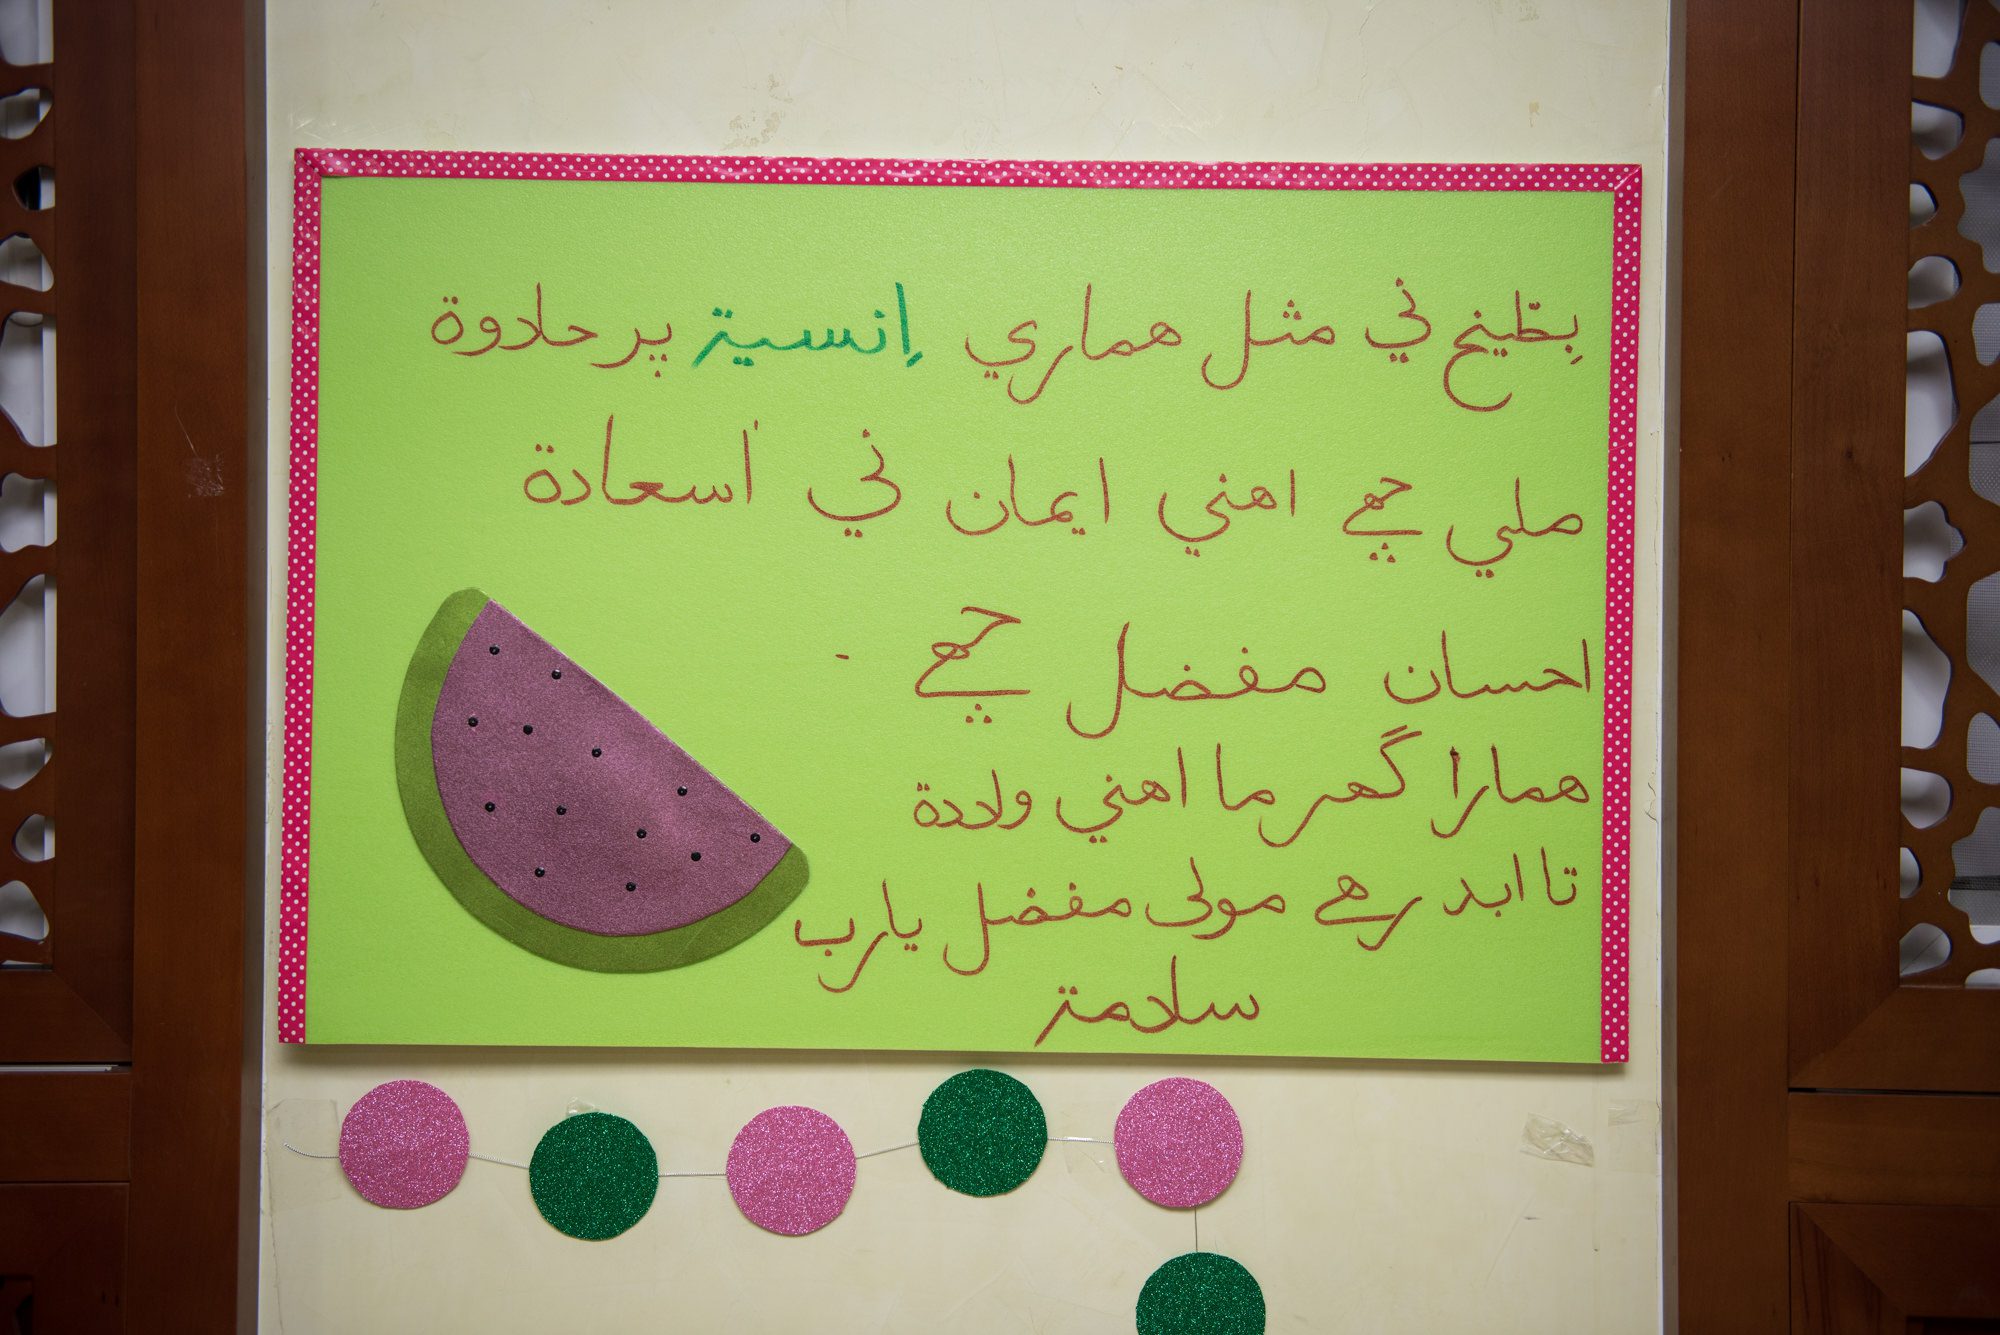 بِطّيخ ني مثل هماري اِنسية پر حلاوة
ملي چھے اهني ايمان ني اسعادة
احسان مفضل چھے -
همارا گھر ما اهني ولادة
تا ابد رهے مولى مفضل يارب
سلامة